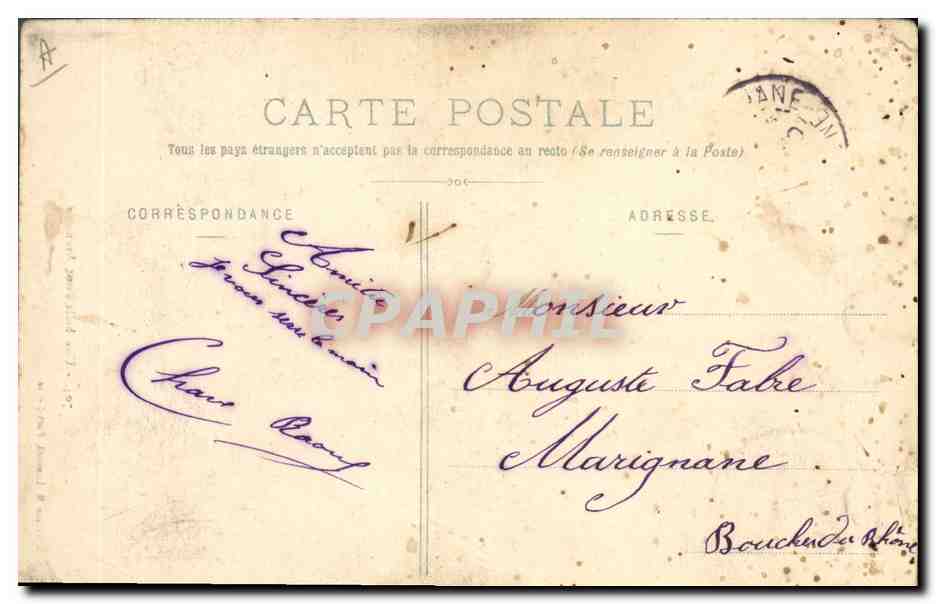 A
CARTE POSTALE
Tous les pays étrangers n'acceptent pas la correspondance au recto (Se renseigner à la Poste)
CORRESPONDANCE
ADRESSE
Amitiés
Sincères
je vous serre la main
Raoul
CPAPHIL
Monsieur
Auguste Fabre
Marignane
Bouches du Rhône